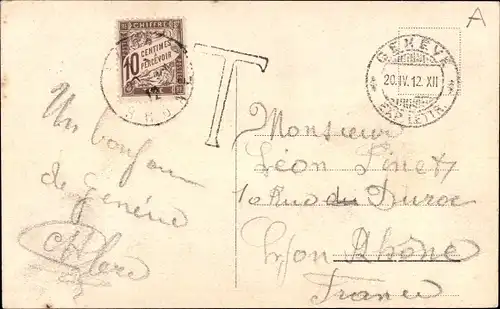 A
CHIFFRE
10 CENTIMES
À PERCEVOIR
12
T
GENÈVE
20.IV.12.XII
EXP. LETTR.
Un bonjour
de Genève
Monsieur
Léon Pinet
10 Rue du Duroc
Lyon Rhône
France